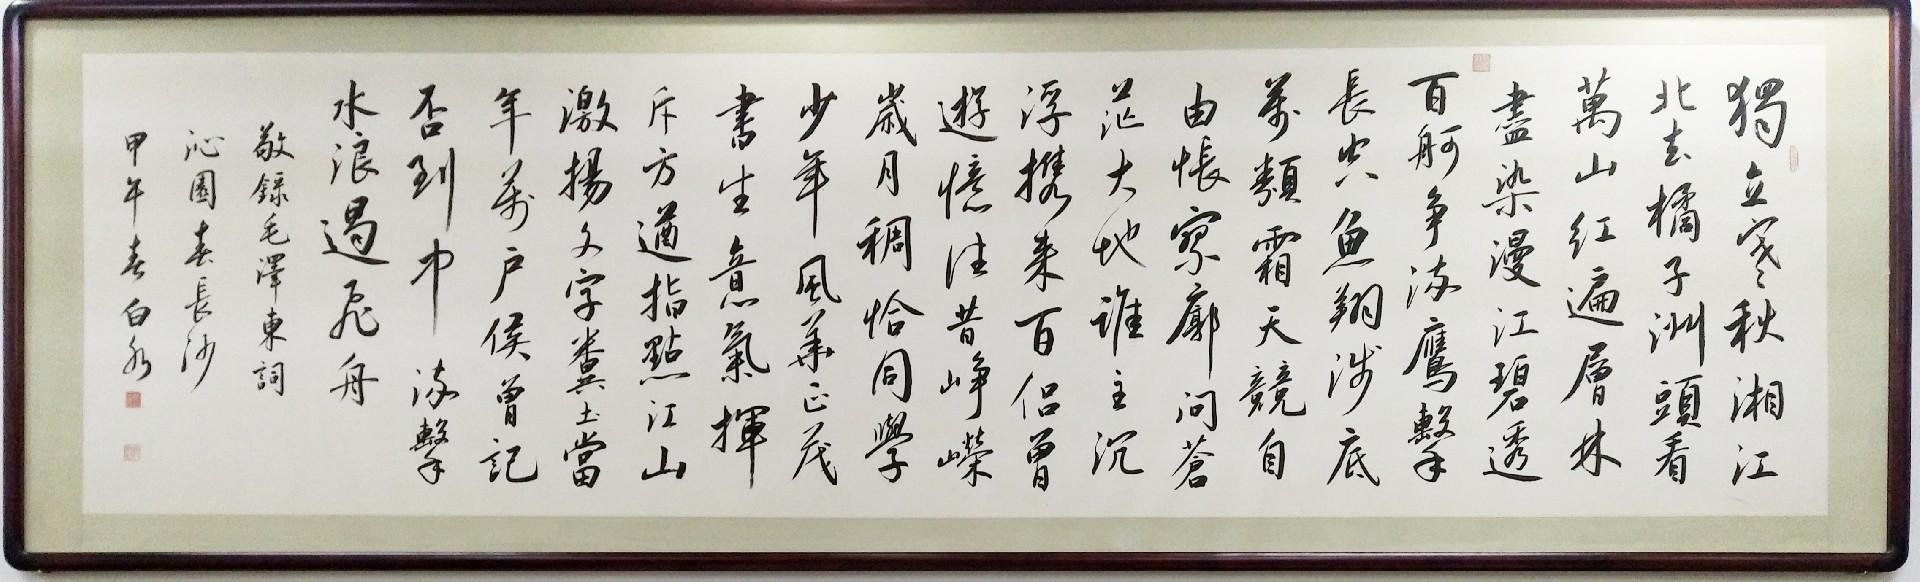 獨立寒秋湘江
北去橘子洲頭看
萬山紅遍層林
盡染漫江碧透
百舸爭流鷹擊
長空魚翔淺底
萬類霜天競自
由悵寥廓問蒼
茫大地誰主沉
浮攜來百侶曾
遊憶往昔崢嶸
歲月稠恰同學
少年風華正茂
書生意氣揮
斥方遒指點江山
激揚文字糞土當
年萬戶侯曾記
否到中流擊
水浪遏飛舟
敬錄毛澤東詞
沁園春長沙
甲午春白